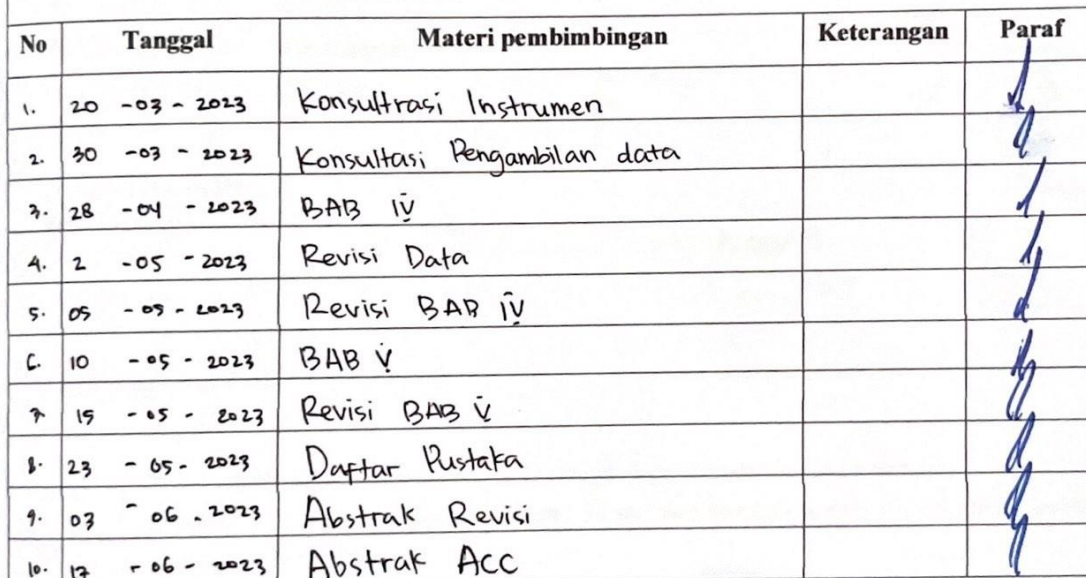 No Tanggal Materi pembimbingan Keterangan Paraf
1. 20 -03 - 2023 Konsultrasi Instrumen
2. 30 -03 - 2023 Konsultasi Pengambilan data
3. 28 -04 - 2023 BAB IV
4. 2 -05 - 2023 Revisi Data
5. 05 -05 - 2023 Revisi BAB IV
6. 10 -05 - 2023 BAB V
7. 15 -05 - 2023 Revisi BAB V
8. 23 -05 - 2023 Daftar Pustaka
9. 03 -06 - 2023 Abstrak Revisi
10. 17 -06 - 2023 Abstrak ACC